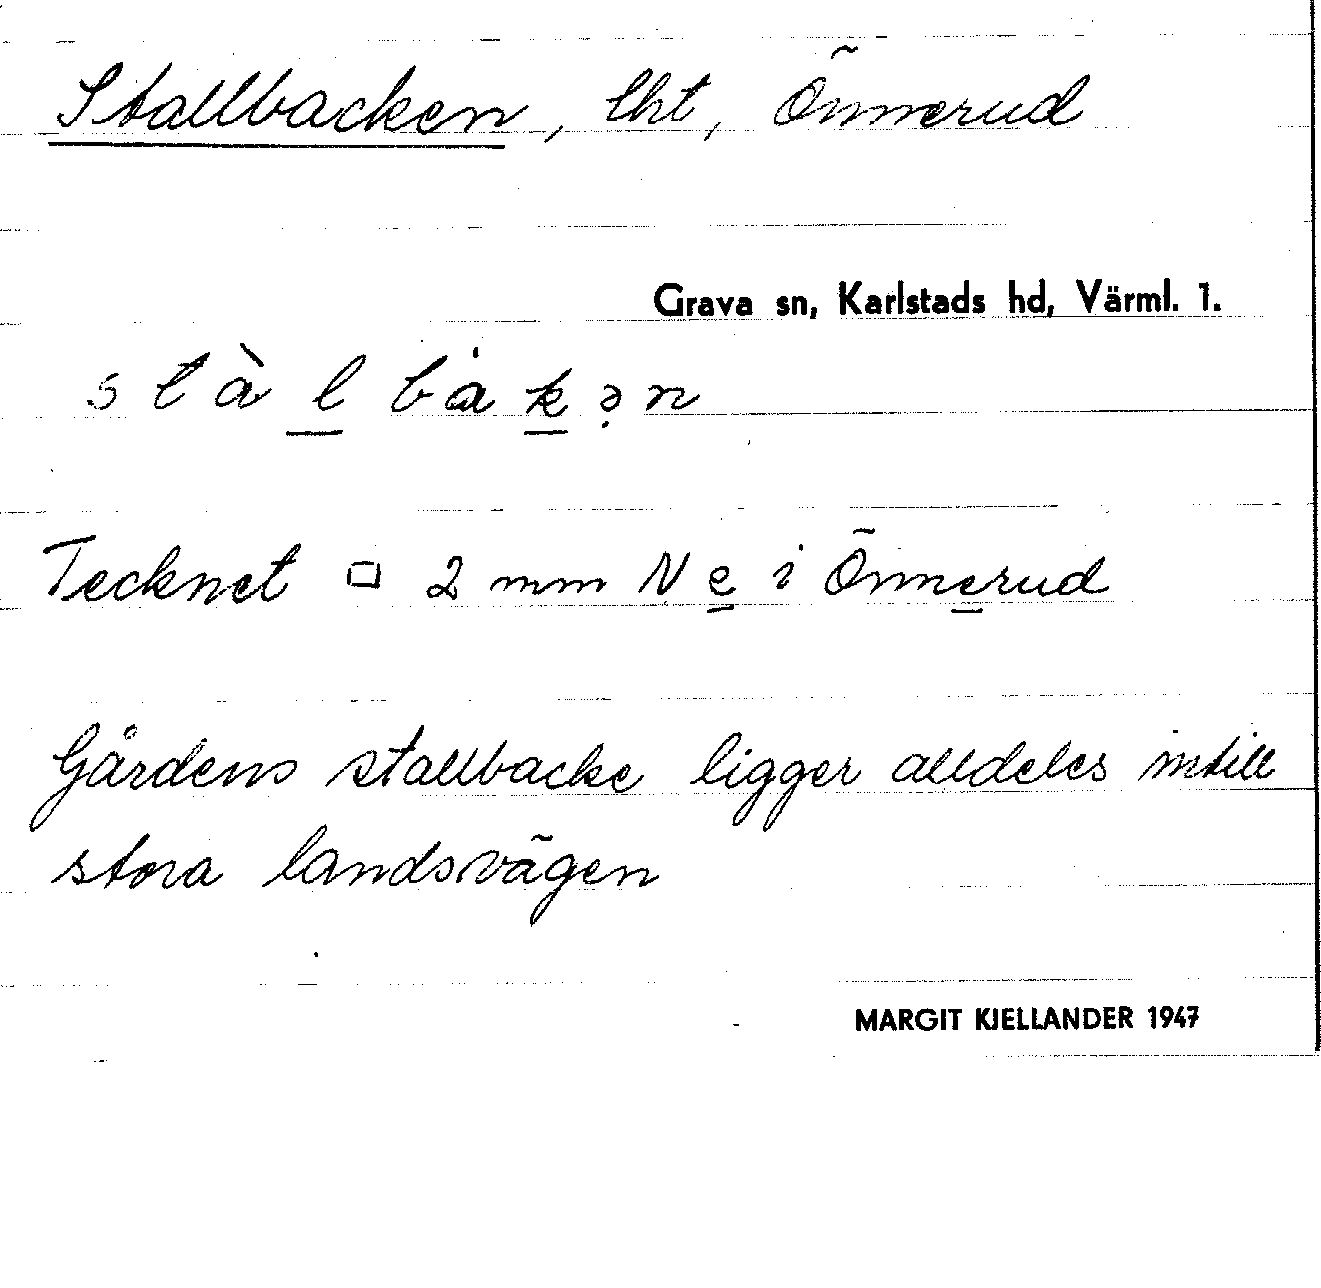 Stallbacken, lht, Önnerud
Grava sn, Karlstads hd, Värml. 1.
stàlbȧkən
Tecknet □ 2 mm N e i Önnerud
Gårdens stallbacke ligger alldeles intill
stora landsvägen
MARGIT KJELLANDER 1947